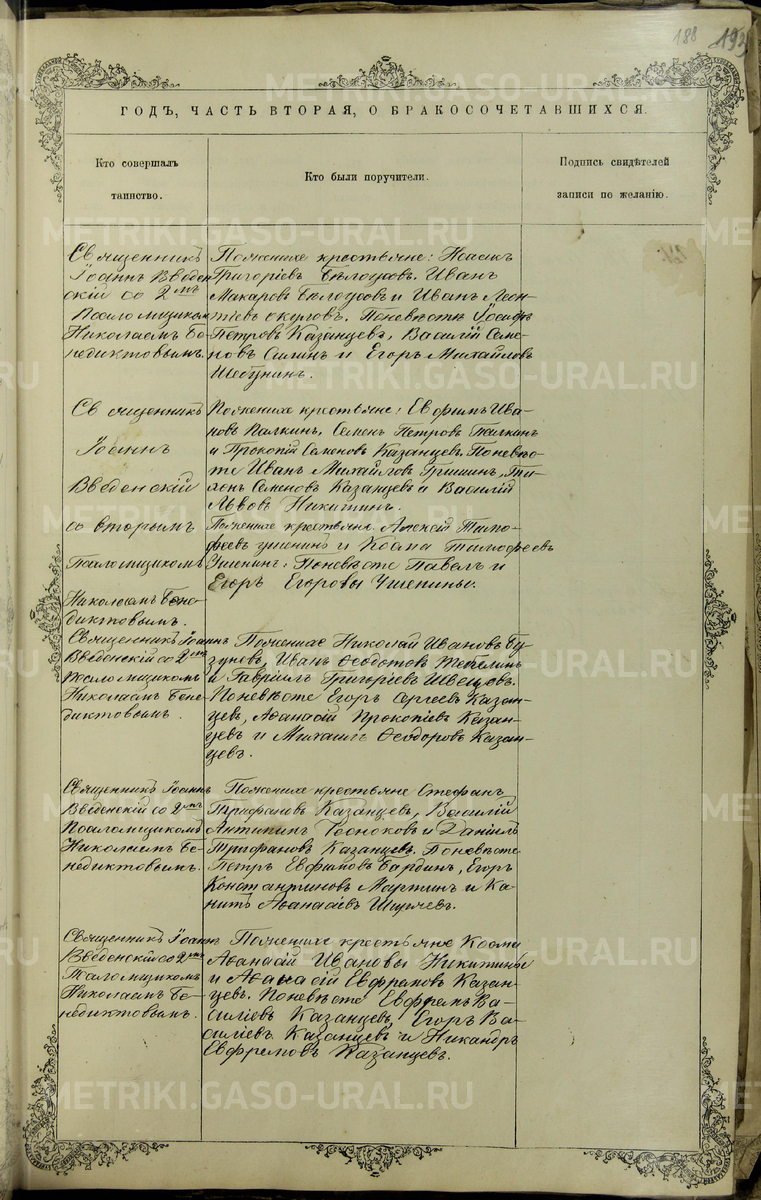 188 193
ГОДЪ, ЧАСТЬ ВТОРАЯ, О БРАКОСОЧЕТАВШИХСЯ.
Кто совершалъ
таинство.
Кто были поручители.
Подпись свидѣтелей
записи по желанію.
Священникъ
Іоаннъ Введен
скій со 2мъ
Псаломщикомъ
Николаемъ Бе-
недиктовымъ.
Поженихе крестьяне:
Григоріевъ Бѣлоусовъ. Иванъ
Макаровъ Бѣлоусовъ и Иванъ Леон-
тіевъ окуловъ. Поневѣсте Іосифъ
Петровъ Казанцевъ, Василій Семе-
новъ и Егоръ Михайловъ
Шебунинъ.
Священникъ
Іоаннъ
Введенскій
со вторымъ
Псаломщикомъ
Николаемъ Бене-
диктовымъ.
Поженихе крестьяне: Евфимъ Ива-
новъ Палкинъ, Семенъ Петровъ Палкинъ
и Прокопій Семеновъ Казанцевъ. Поневѣс-
те Иванъ Михайловъ Гришинъ, Ти-
хонъ Семеновъ Казанцевъ и Василій
Львовъ Никитинъ.
Поженихе крестьяне Алексѣй Тимо-
феевъ ушенинъ и Косма Тимофеевъ
Ушенинъ: Поневѣсте Павелъ и
Егоръ Егоровы Ушенины.
Священникъ Іоаннъ
Введенскій со 2мъ
псаломщикомъ
Николаемъ Бене-
диктовымъ.
Поженихе Николай Ивановъ Бу-
зуновъ, Иванъ Ѳеодотовъ
и Гавріилъ Григоріевъ Швецовъ.
Поневѣсте Егоръ Сергеевъ Казан-
цевъ, Аѳанасій Прокопіевъ Казан-
цевъ и Михаилъ Ѳеодоровъ Казан-
цевъ.
Священникъ Іоаннъ
Введенскій со 2мъ
Псаломщикомъ
Николаемъ Бе-
недиктовымъ.
Поженихе крестьяне Стефанъ
Трифановъ Казанцевъ, Василій
Антипинъ и Даніилъ
Трифановъ Казанцевъ. Поневѣсте
Петръ Евфимовъ Бардинъ, Егоръ
Константиновъ Мартинъ и Ка-
Аѳанасіевъ
Священникъ Іоаннъ
Введенскій со 2мъ
Псаломщикомъ
Николаемъ Бе-
недиктовымъ.
Поженихе крестьяне Косма
Аѳанасій Ивановы Никитины
и Аѳанасій Евфремовъ Казан-
цевъ. Поневѣсте Евфремъ Ва-
силіевъ Казанцевъ, Егоръ Ва-
силіевъ Казанцевъ и Никандръ
Евфремовъ Казанцевъ.
METRIKI.GASO-URAL.RU